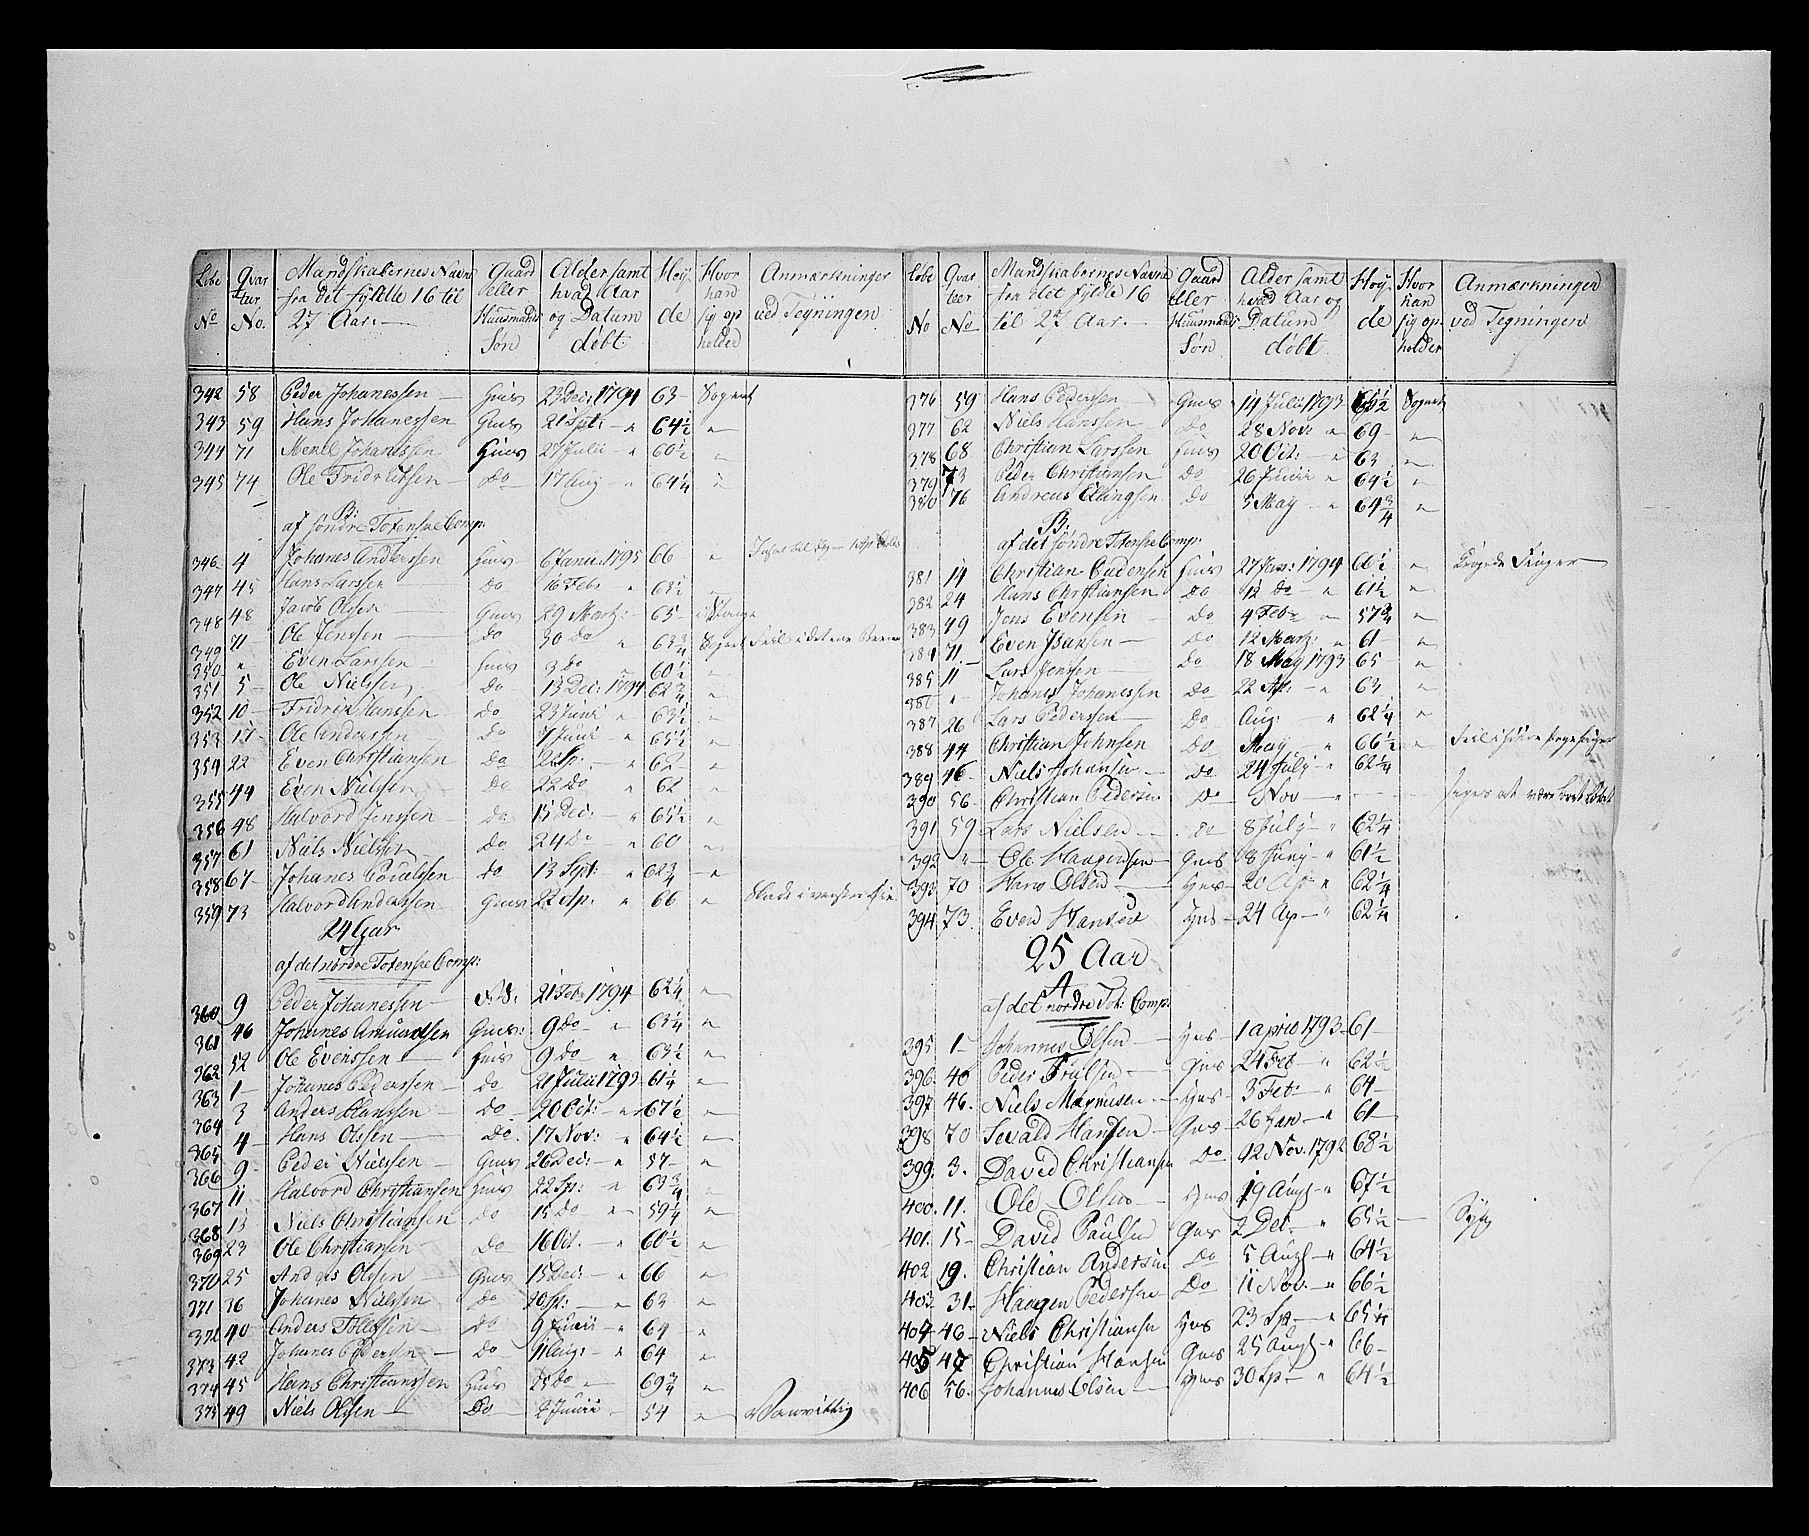 Løbe No Qvarteer No. Mandskabernes Navne fra det fyldte 16 til 27 Aar. Gaard eller Huusmands Søn Alder samt hvad Aar og Datum døbt Høyde Hvor han sig opholder Anmærkninger ved Tegningen
342 58 Peder Johanessen Gmds 23 Dec: 1794 63 Sognet
343 59 Hans Johanessen Gmds 21 Spt: " 64½ "
344 71 Johanessen Hmds 27 Julii " 60½ "
345 74 Ole Fridrichsen Do 17 Aug " 64¼ "
B:
af søndre Totenske Comp:
346 4 Johanes Anderssen Hmds 6 Janu: 1795 66 "
347 45 Hans Larssen Do 16 Febr " 63½ "
348 48 Jacob Olsen Gmds 29 Martz: 65
349 71 Ole Jenssen Do 30 Do " 63¾ Sognet Feil i det ene Been
350 " Even Larssen Hmds 3 Do 60½ "
351 5 Ole Nielssen Do 13 Dec: 1794 62¾ "
352 10 Fridrik Hanssen Do 23 Juni " 63½ "
353 17 Ole Anderssen Do 7 Juni " 65½ "
354 22 Even Christiansen Do 22 Sp: " 62 "
355 44 Even Nielssen Do 22 Do " 62 "
356 48 Halvord Jenssen Do 15 Dec: " 65½ "
357 61 Niels Nielssen Do 24 Do " 60 "
358 67 Johanes Povelssen Do 13 Sept: " 62¾ "
359 73 Halvord Anderssen Gmds 22 Ap: " 66 " Skade i venstre Øie
24 Aar
A
af det nordre Totenske Comp:
360 9 Peder Johanessen 21 Feb: 1794 62¼ "
361 46 Johanes Amundsen Gmds: 9 Do " 63¼ "
362 52 Ole Evenssen Hmds 9 Do " 63½ "
363 1 Johanes Pederssen Do 21 Julii 1793 61¼ "
364 3 Anders Hanssen Do 20 Oct: " 67½ "
365 4 Hans Olssen Do. 17 Nov: " 64½ "
366 9 Peder Nielssen Gmds 26 Dec: " 57 "
367 11 Halvord Christiansen Hmds 22 Sp: " 63¾ "
368 13 Niels Christiansen Do 15 Do " 59¼ "
369 23 Ole Christiansen Do 16 Oct. " 60½ "
370 25 Anders Olssen Gmds 15 Dec: " 66 "
371 36 Johanes Nielssen Do 20 Sp: " 63 "
372 40 Anders Tollefsen Do 9 Junii " 64 "
373 42 Johanes Pedersen Do 11 Aug: " 64 "
374 45 Hans Christianssen Hmds 25 Do " 69¾ "
375 49 Niels Olssen Do 2 Junii " 54 " Vanvittig
Løbe No Qvarteer No Mandskabernes Navne fra det fyldte 16 til 27 Aar. Gaard eller Huusmands Søn Alder samt hvad Aar og Datum døbt Høyde Hvor han sig opholder Anmærkninger ved Tegningen
376 59 Hans Pederssen Gmds 14 Julii 1793 65½ Sognet
377 62 Niels Hanssen Do 28 Nov: " 69 "
378 68 Christian Larssen Hmds 20 Oct: " 63 "
379 73 Peder Christiansen Do 26 Junii " 64½ "
380 76 Andreas Ellingsen Do 5 May " 64¾ "
B.
af det søndre Totenske Comp:
381 14 Christian Gudensen Hmds 27 Jan: 1794 66½ " Krogede Finger
382 24 Hans Christiansen Do 12 Do " 61½ "
383 49 Jens Evensen Do 4 Feb: " 57¾ "
384 71 Even Isaksen Do 12 Martz: " 61 "
385 11 Lars Jensen Do 18 May 1793 65 "
386 " Johanes Johanessen Do 22 Ap: " 63 "
387 26 Lars Pederssen Do Aug: " 62¼ "
388 44 Christian Johnsen Do May " 66½ " Feil i høire Pegefinger
389 46 Niels Johansen Do 24 July " 62¼
390 56 Christian Pedersen Do Nov " siges at være
391 59 Lars Nielsen Do 8 July " 62¼
392 " Ole Haagensen Gmds 8 Juny " 61½
393 70 Hans Olsen Hmds 20 Ap " 62¼
394 73. Even Hansen Hmds 24 Ap " 62¼
25 Aar
A
af det nordre Tot: Comp:
395 1 Johannes Olsen Hms 1 april 1793 61
396 40 Peder Gms 24 Feb " 62½
397 46. Niels Magnusen Hms 3 Feb: " 64
398 70 Sevald Hansen Gms 26 Jan " 61
399. 3. David Christiansen Do 12 Nov. 1792 68½
400. 11. Ole Olsen Hms 19 Augs " 67½
401. 15 David Poulsen Gms 2 Det. " 65½ Syg
402 19. Christian Andersen Do 5 Augs " 64½
403 31 Haagen Pedersen Do 11 Nov. " 66½
404 46 Niels Christiansen Hms 23 Sp. " 65¼
405 47 Christian Hansen Gms 25 Augs " 66
406 56. Johannes Olsen Hms 30 Sp " 64½